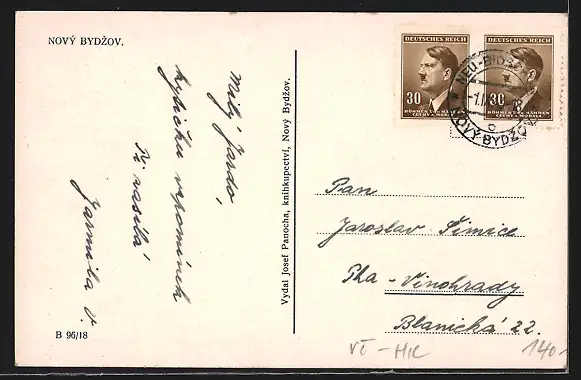 NOVÝ BYDŽOV.
Milý Jardo,
kytičku vzpomínek
Ti zasílá
Jarmila V.
B 96/18
Vydal Josef Panocha, knihkupectví, Nový Bydžov.
DEUTSCHES REICH
30
BÖHMEN UND MÄHREN
ČECHY A MORAVA
DEUTSCHES REICH
30
BÖHMEN UND MÄHREN
ČECHY A MORAVA
NEU-BIDSCHOW
NOVÝ BYDŽOV
c
Pan
Jaroslav Šimice
Pha - Vinohrady
Blanická 22.
VČ - HK
140,-